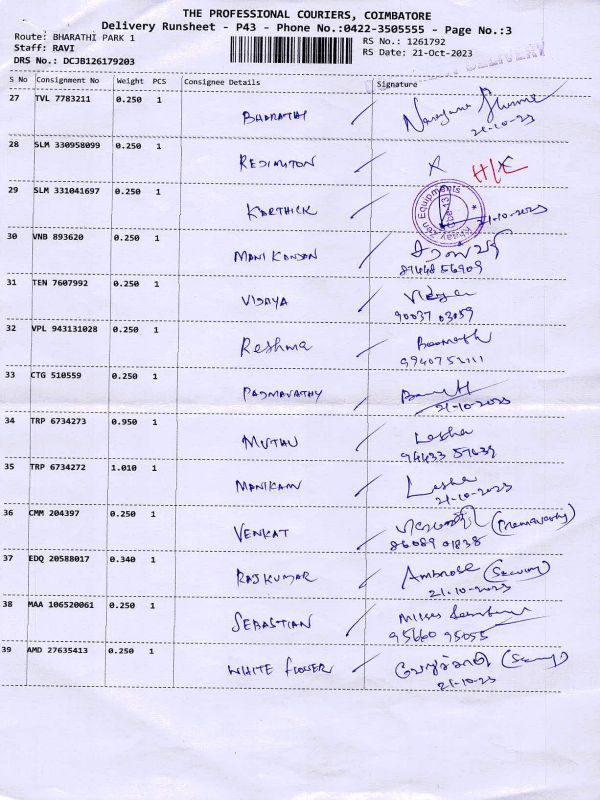 THE PROFESSIONAL COURIERS, COIMBATORE
Delivery Runsheet - P43 - Phone No.:0422-3505555 - Page No.:3
Route: BHARATHI PARK 1
RS No.: 1261792
Staff: RAVI
RS Date: 21-Oct-2023
DRS No.: DCJB126179203
DELIVERY
S No Consignment No Weight PCS Consignee Details Signature
27 TVL 7783211 0.250 1 BHARATHI
21-10-23
28 SLM 330958099 0.250 1 REDINGTON
29 SLM 331041697 0.250 1 KARTHICK
Equipments
21-10-2023
30 VNB 893620 0.250 1 MANI KANDAN
81448 56909
31 TEN 7607992 0.250 1 VIJAYA Vidya
90037 03059
32 VPL 943131028 0.250 1 Reshma
9940752111
33 CTG 510559 0.250 1 PADMAVATHY
21-10-2023
34 TRP 6734273 0.950 1 MUTHU Lesha
94433 57639
35 TRP 6734272 1.010 1 MANIKAM Lesha
21-10-2023
36 CMM 204397 0.250 1 VENKAT
86089 01838
37 EDQ 20588017 0.340 1 RAJKUMAR Ambrose (Security)
21-10-2023
38 MAA 106520061 0.250 1 SEBASTIAN
95660 95055
39 AMD 27635413 0.250 1 WHITE FLOWER
21-10-23